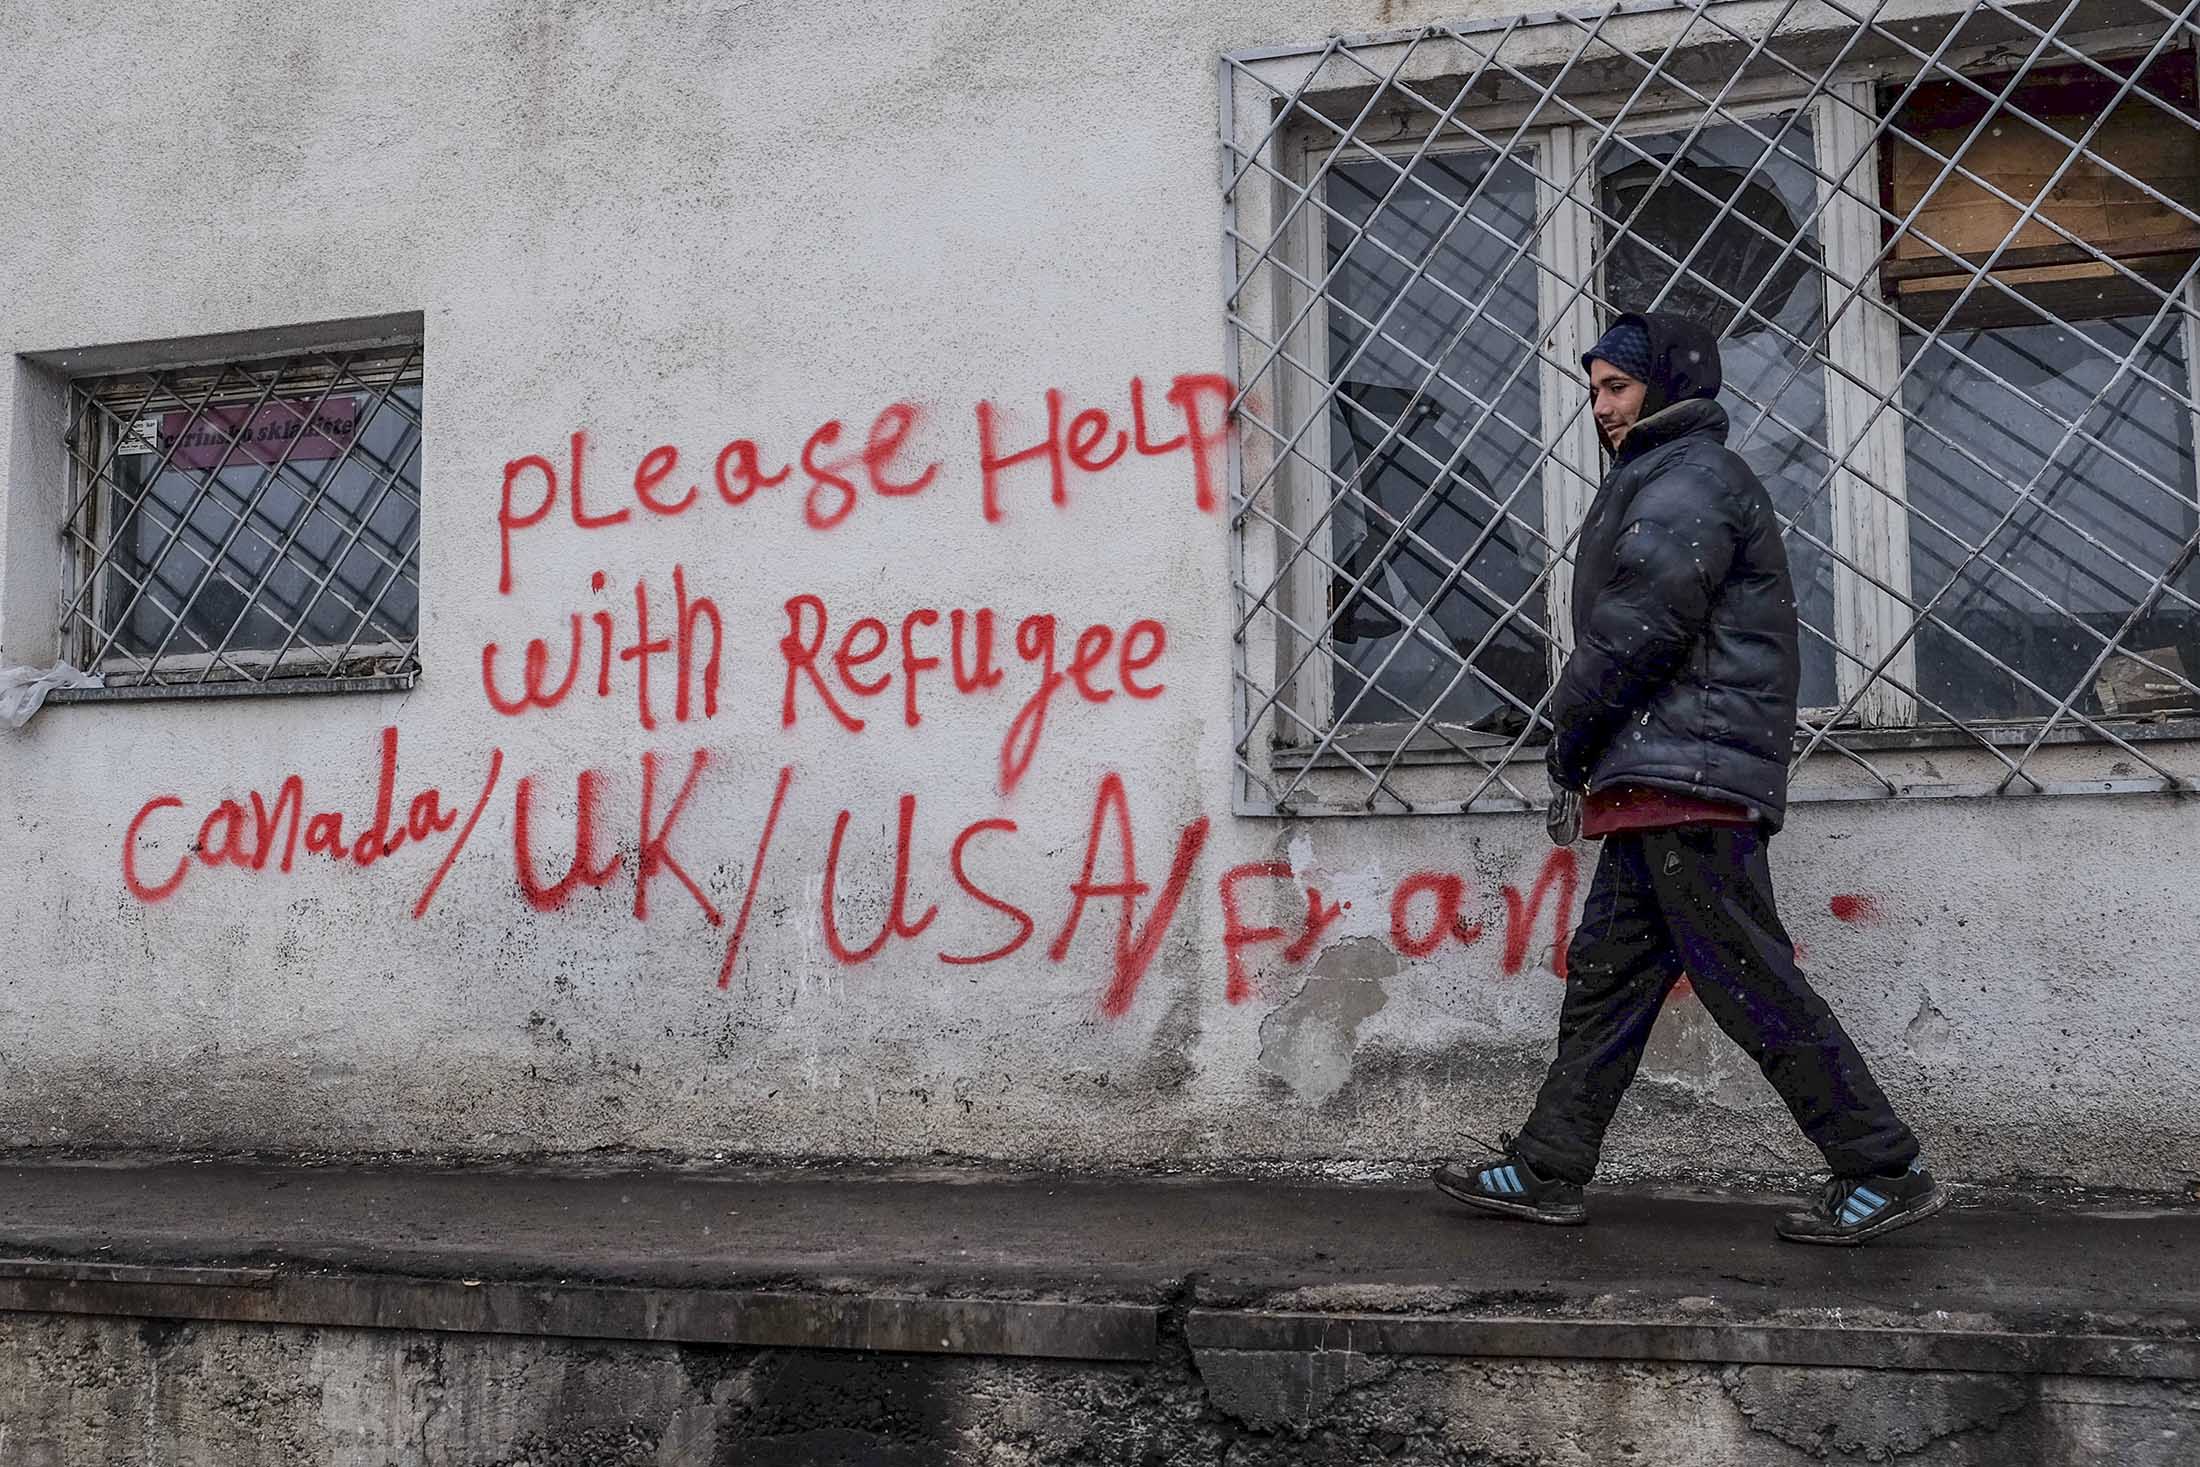 carinsko skladište
pLease HeLp
with Refugee
canada/UK/USA/Fran